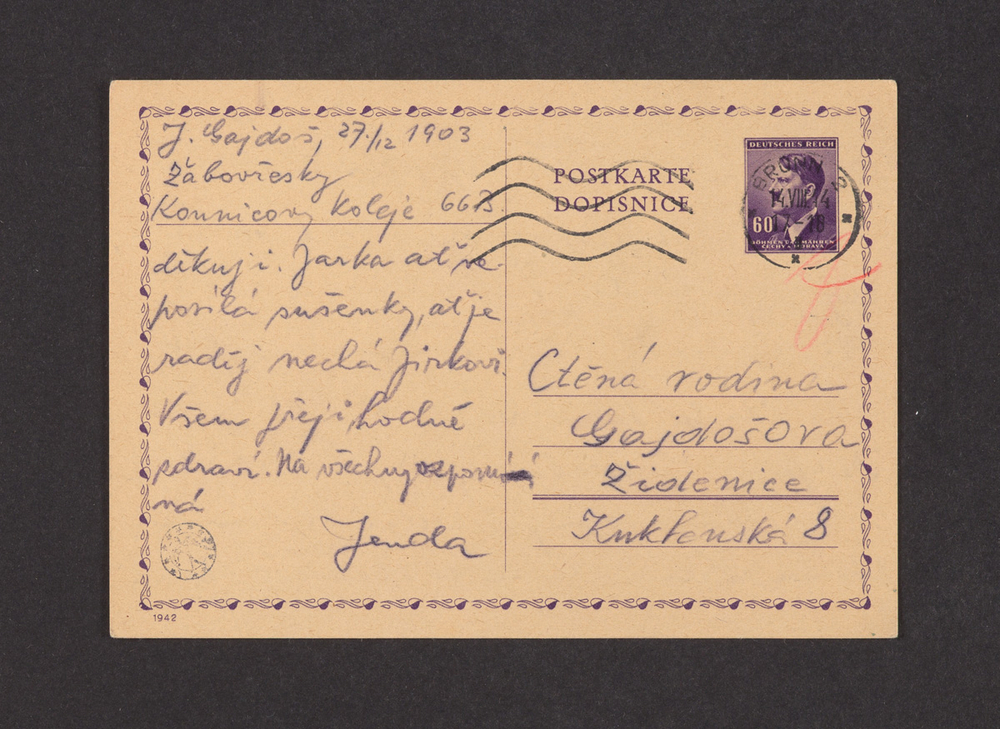 J. Gajdoš, 27./12 1903
Žabovřesky
Kounicovy koleje 66B.
děkuji. Jarka ať ne-
posílá sušenky, ať je
raděj nechá Jirkovi.
Všem přeji hodně
zdraví. Na všechny vzpomí
ná
Jenda
1942
POSTKARTE
DOPISNICE
DEUTSCHES REICH
60
BÖHMEN UND MÄHREN
ČECHY A MORAVA
BRÜNN 2
14.VIII.
Ctěná rodina
Gajdošova
Židenice
Kuklenská 8